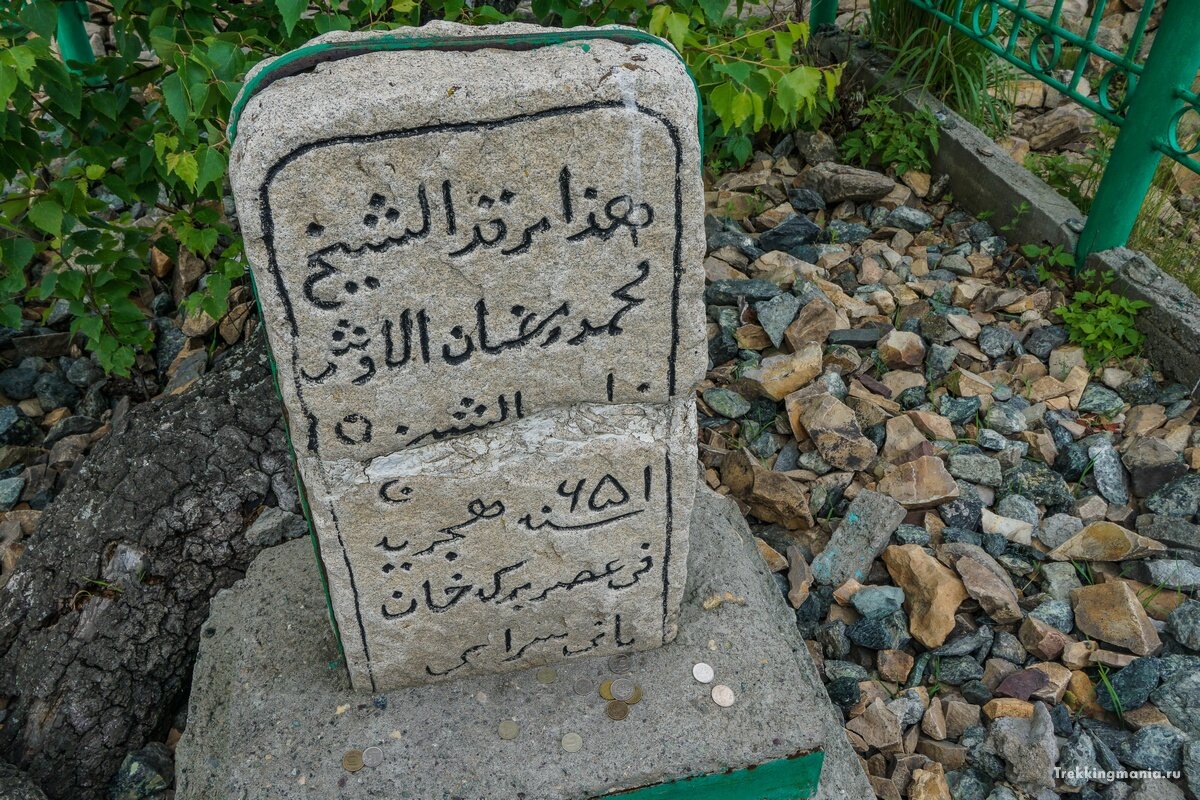 هذا مرقد الشيخ
محمد رمضان الاوشى
سنه ٦٥١
هجريه
فى عصر بركه خان
بانى سراى
Trekkingmania.ru